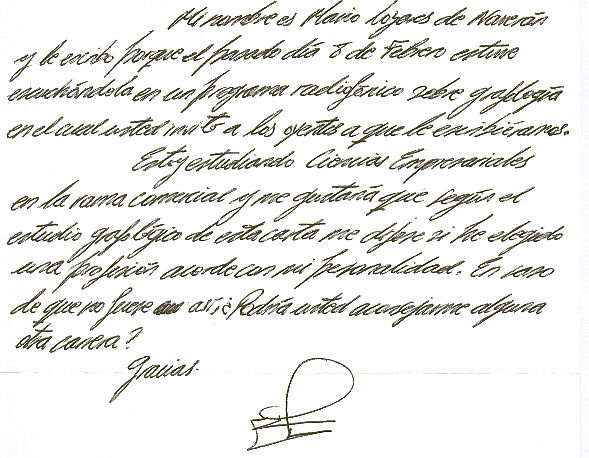 Mi nombre es Mario Logares de Naverán
y le escribo porque el pasado día 8 de Febrero estuve
escuchándola en un programa radiofónico sobre grafología
en el cual usted invitó a los oyentes a que le escribiéramos.
Estoy estudiando Ciencias Empresariales
en la rama comercial y me gustaría que según el
estudio grafológico de esta carta me dijese si he elegido
una profesión acorde con mi personalidad. En caso
de que no fuere así ¿Podría usted aconsejarme alguna
otra carrera?
Gracias.